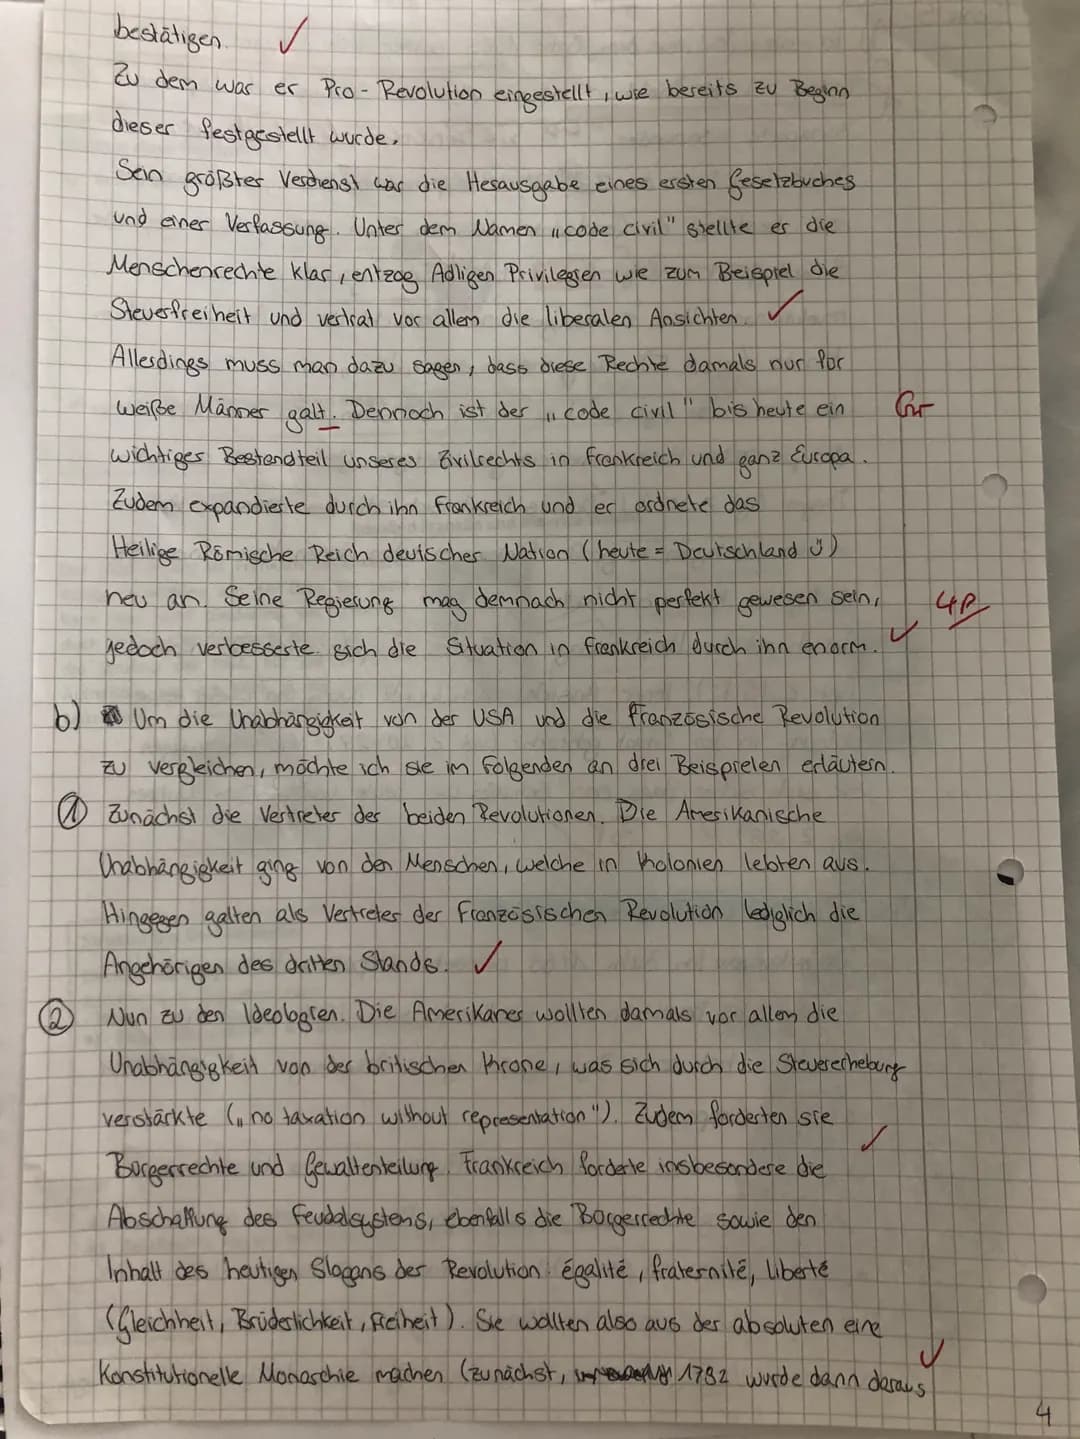 bestätigen.
Zu dem war er Pro-Revolution eingestellt, wie bereits zu Beginn
dieser festgestellt wurde.
Sein größter Verdienst war die Herausgabe eines ersten Gesetzbuches
und einer Verfassung. Unter dem Namen „code civil" stellte er die
Menschenrechte klar, entzog Adligen Privilegien wie zum Beispiel die
Steuerfreiheit und vertrat vor allem die liberalen Ansichten.
Allerdings muss man dazu sagen, dass diese Rechte damals nur für
weiße Männer galt. Dennoch ist der „code civil" bis heute ein Gr
wichtiges Bestandteil unseres Zivilrechts in Frankreich und ganz Europa.
Zudem expandierte durch ihn Frankreich und er ordnete das
Heilige Römische Reich deutscher Nation (heute = Deutschland ü)
neu an. Seine Regierung mag demnach nicht perfekt gewesen sein, 4P
jedoch verbesserte sich die Situation in Frankreich durch ihn enorm.
b) Um die Unabhängigkeit von der USA und die Französische Revolution
zu vergleichen, möchte ich sie im Folgenden an drei Beispielen erläutern.
① Zunächst die Vertreter der beiden Revolutionen. Die Amerikanische
Unabhängigkeit ging von den Menschen, welche in Kolonien lebten aus.
Hingegen galten als Vertreter der Französischen Revolution lediglich die
Angehörigen des dritten Stands.
② Nun zu den Ideologien. Die Amerikaner wollten damals vor allem die
Unabhängigkeit von der britischen Krone, was sich durch die Steuererhebung
verstärkte („no taxation without representation"). Zudem forderten sie
Bürgerrechte und Gewaltenteilung. Frankreich forderte insbesondere die
Abschaffung des Feudalsystems, ebenfalls die Bürgerrechte sowie den
Inhalt des heutigen Slogans der Revolution: égalité, fraternité, liberté
(Gleichheit, Brüderlichkeit, Freiheit). Sie wollten also aus der absoluten eine
Konstitutionelle Monarchie machen (zunächst, 1792 wurde dann daraus
4